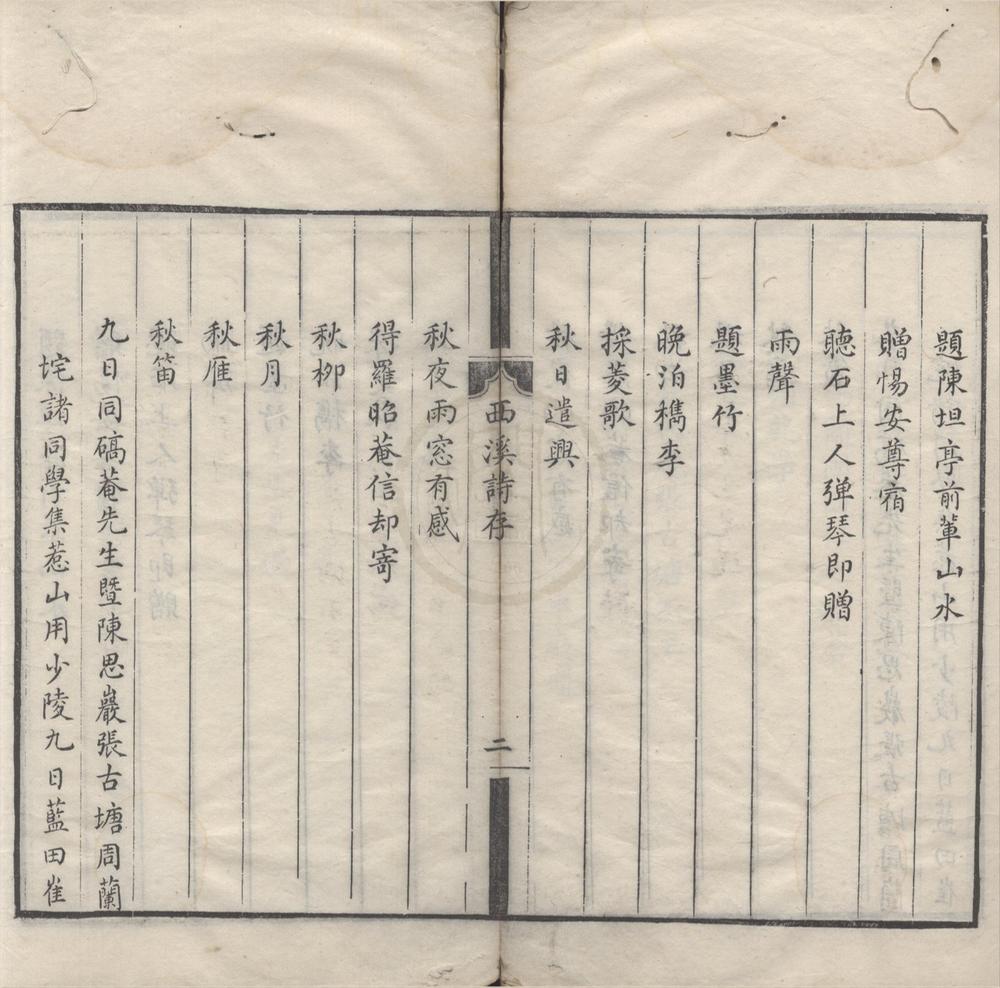 題陳坦亭前輩山水
贈惕安尊宿
聽石上人弹琴即贈
雨聲
題墨竹
晚泊檇李
採菱歌
秋日遣興
西溪詩存
二
秋夜雨窓有感
得羅昭菴信却寄
秋柳
秋月
秋雁
秋笛
九日同碻菴先生暨陳思巖張古塘周蘭
坨諸同學集惹山用少陵九日藍田崔